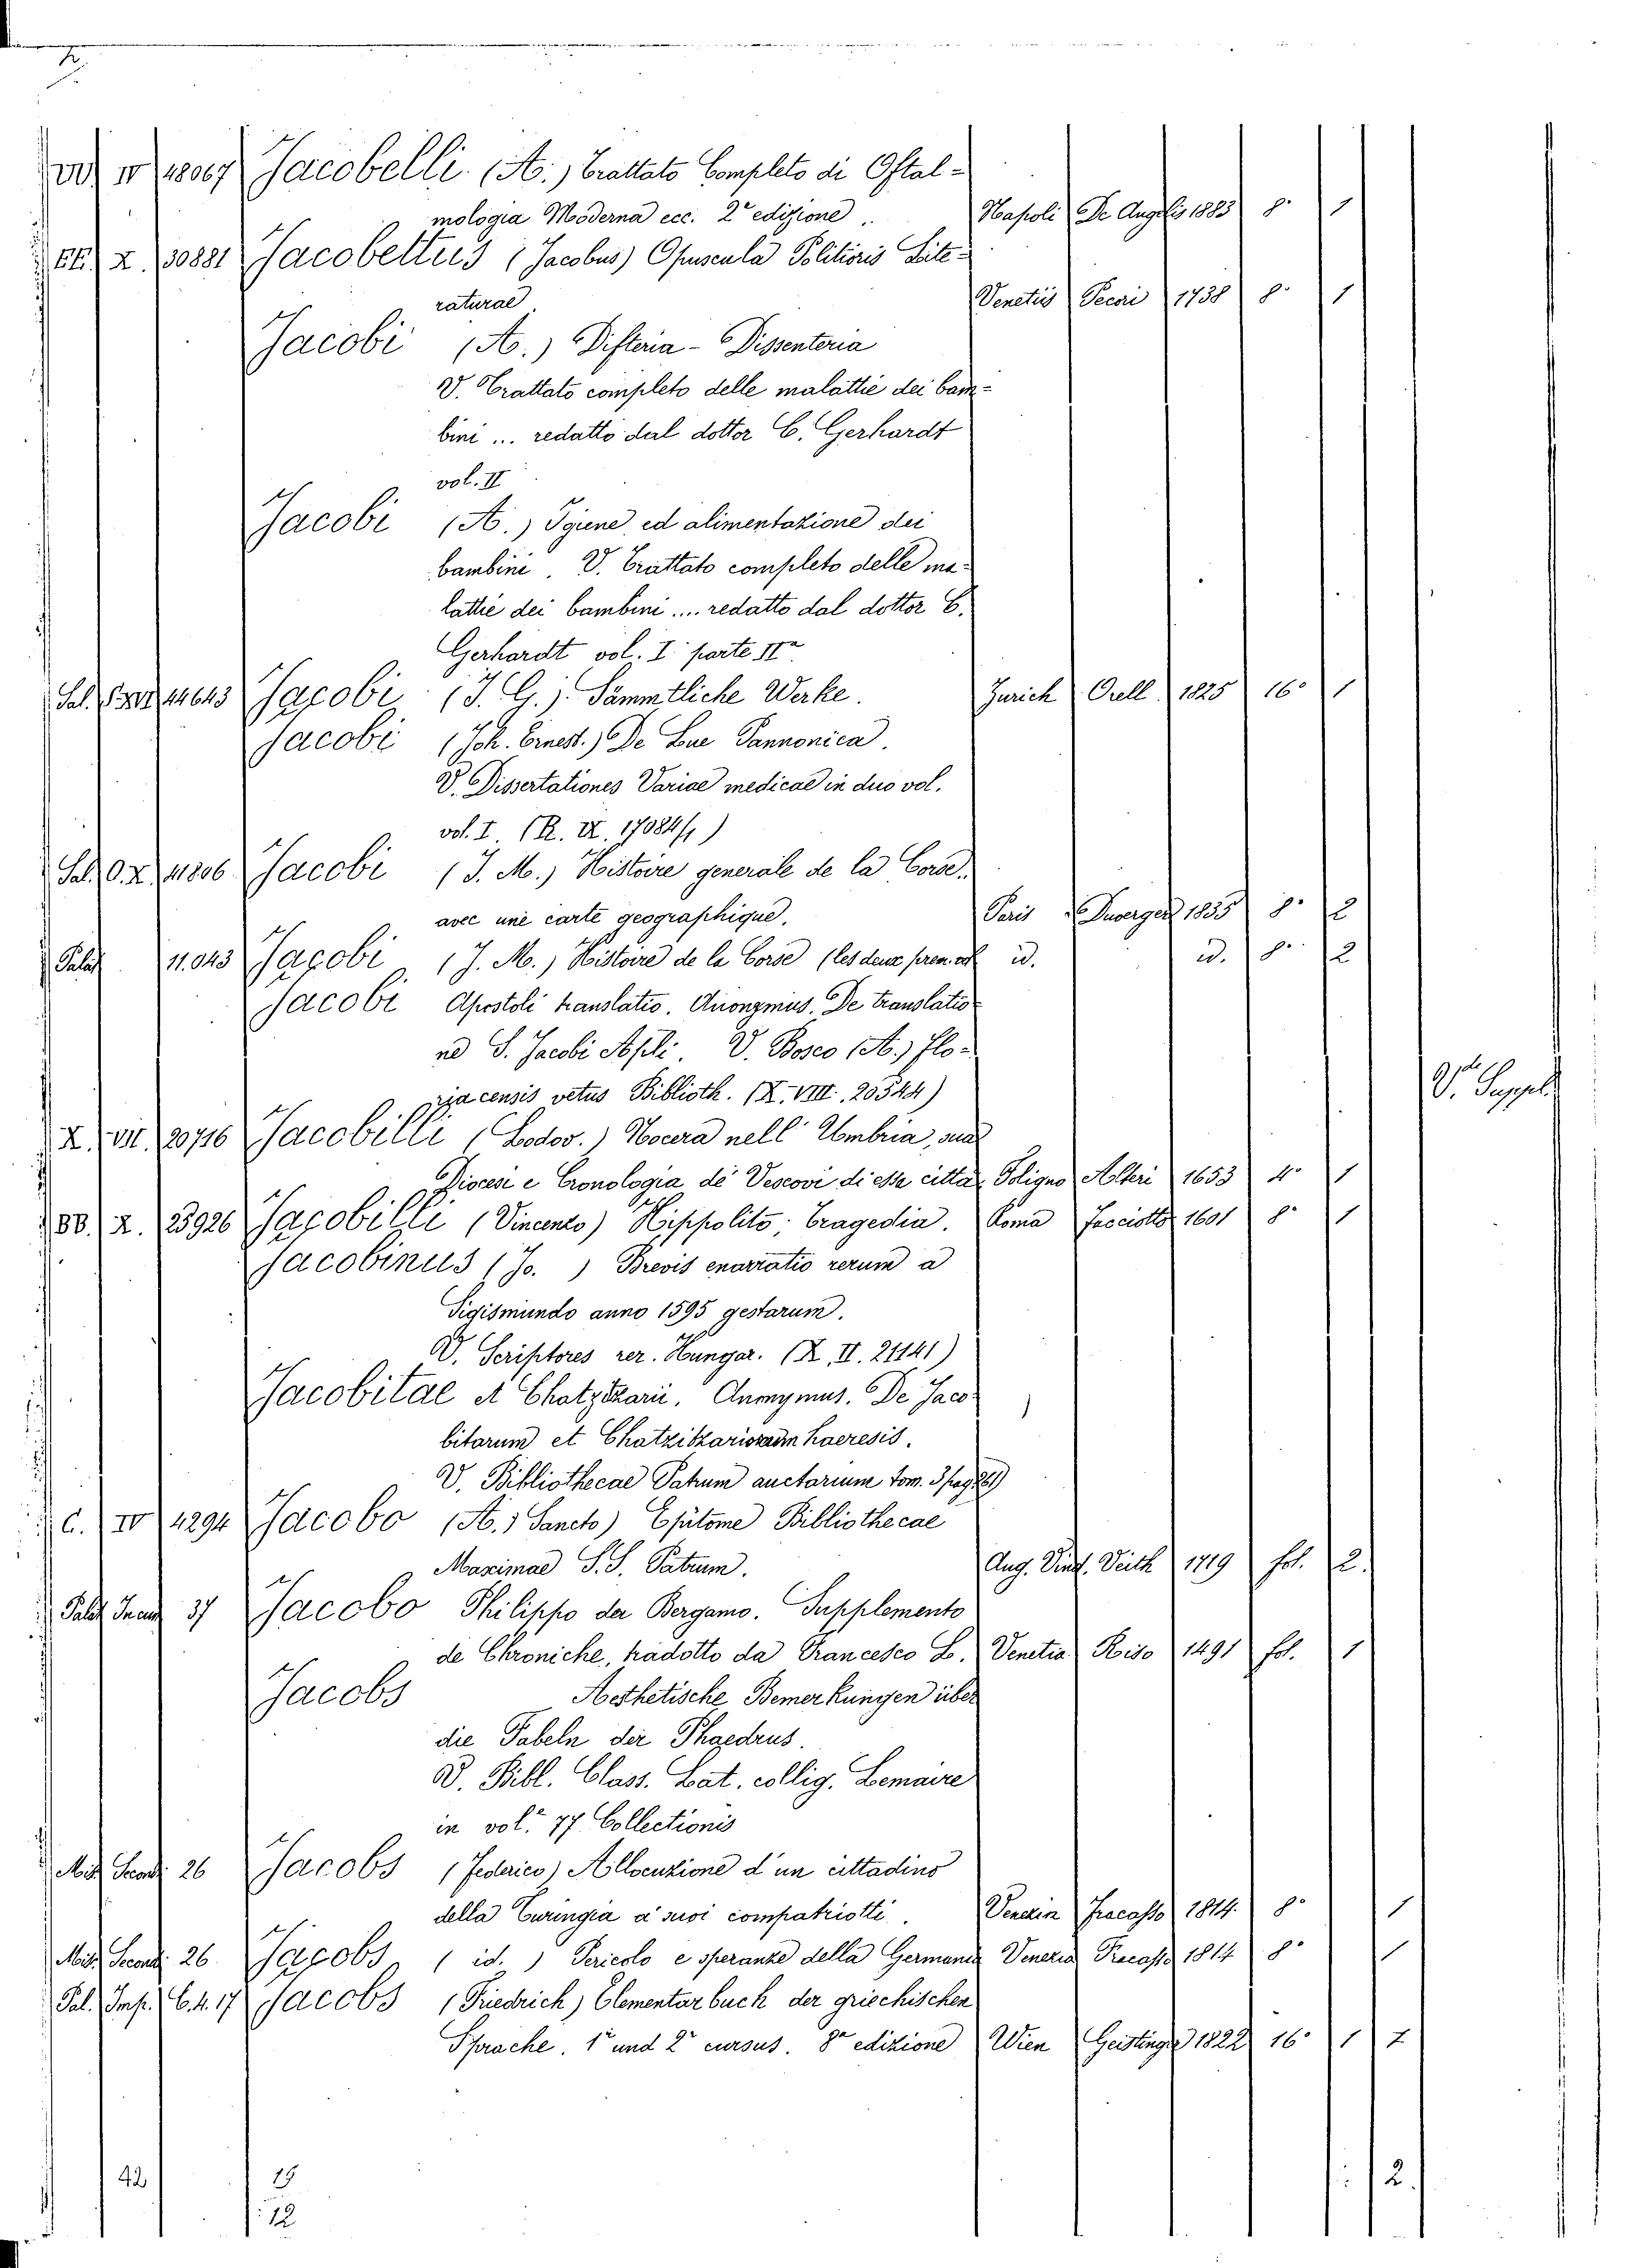 2.
VV IV 18067 Jacobelli (A.) Trattato Completo di Oftal-
mologia Moderna ecc. 2ª edizione. Napoli De Angelis 1883 8º 1
EE. X. 30881 Jacobettus (Jacobus) Opuscula Politioris Lite-
raturae. Venetiis Pecori 1738 8º 1
Jacobi (A.) Difteria - Dissenteria
V. Trattato completo delle malattie dei bam-
bini ... redatto dal dottor C. Gerhardt
vol. II
Jacobi (A.) Igiene ed alimentazione dei
bambini. V. Trattato completo delle ma-
lattie dei bambini .... redatto dal dottor C.
Gerhardt vol. I parte IIª
Sal. 14643 Jacobi (J. G.) Sämmtliche Werke. Zurich Orell 1825 16º 1
Jacobi (Joh. Ernest.) De Lue Pannonica.
V. Dissertationes Variae medicae in duo vol.
vol. I (R. IX. 17084/1)
Sal. O. X. 41806 Jacobi (J. M.) Histoire generale de la Corse,
avec une carte geographique. Paris 1835 8º 2
Palat 11.043 Jacobi (J. M.) Histoire de la Corse (les deux prem. id. id. 8º 2
Jacobi Apostoli translatio. Anonymus. De translatio-
ne S. Jacobi Apli. V. Bosco (A.) Flo-
riacensis vetus Biblioth. (X. VIII. 20544) V. Suppl.
X. VII. 20716 Jacobilli (Lodov.) Nocera nell' Umbria, sua
Diocesi e Cronologia de' Vescovi di essa città Foligno Alteri 1653 4º 1
BB. X. 25926 Jacobilli (Vincenzo) Hippolito; Tragedia. Roma Facciotto 1601 8º 1
Jacobinus (Jo. ) Brevis enarratio rerum a
Sigismundo anno 1595 gestarum.
V. Scriptores rer. Hungar. (X. II. 21141)
Jacobitae et Chatzitzarii. Anonymus. De Jaco-
bitarum et Chatzitzariorum haeresis.
V. Bibliothecae Patrum auctarium tom. 3 pag 261)
C. IV 4294 Jacobo (A. Sancto) Epitome Bibliothecae
Maximae S.S. Patrum. Aug. Vind. Veith 1719 fol. 2.
Palat Incun 37 Jacobo Philippo da Bergamo. Supplemento
de Chroniche, tradotto da Francesco L. Venetia Riso 1491 fol. 1
Jacobs Aesthetische Bemerkungen über
die Fabeln der Phaedrus.
V. Bibl. Class. Lat. collig. Lemaire
in vol. 77 Collectionis
Mis. Second. 26 Jacobs (Federico) Allocuzione d'un cittadino
della Turingia a' suoi compatriotti. Venezia Fracasso 1814. 8º 1
Mis. Second. 26 Jacobs (id.) Pericolo e speranze della Germania Venezia Fracasso 1814 8º 1
Pal. Imp. C. 4. 17 Jacobs (Friedrich) Elementarbuch der griechischen
Sprache. 1º und 2º cursus. 8ª edizione Wien Geistinger 1822 16º 1
42 12 2.